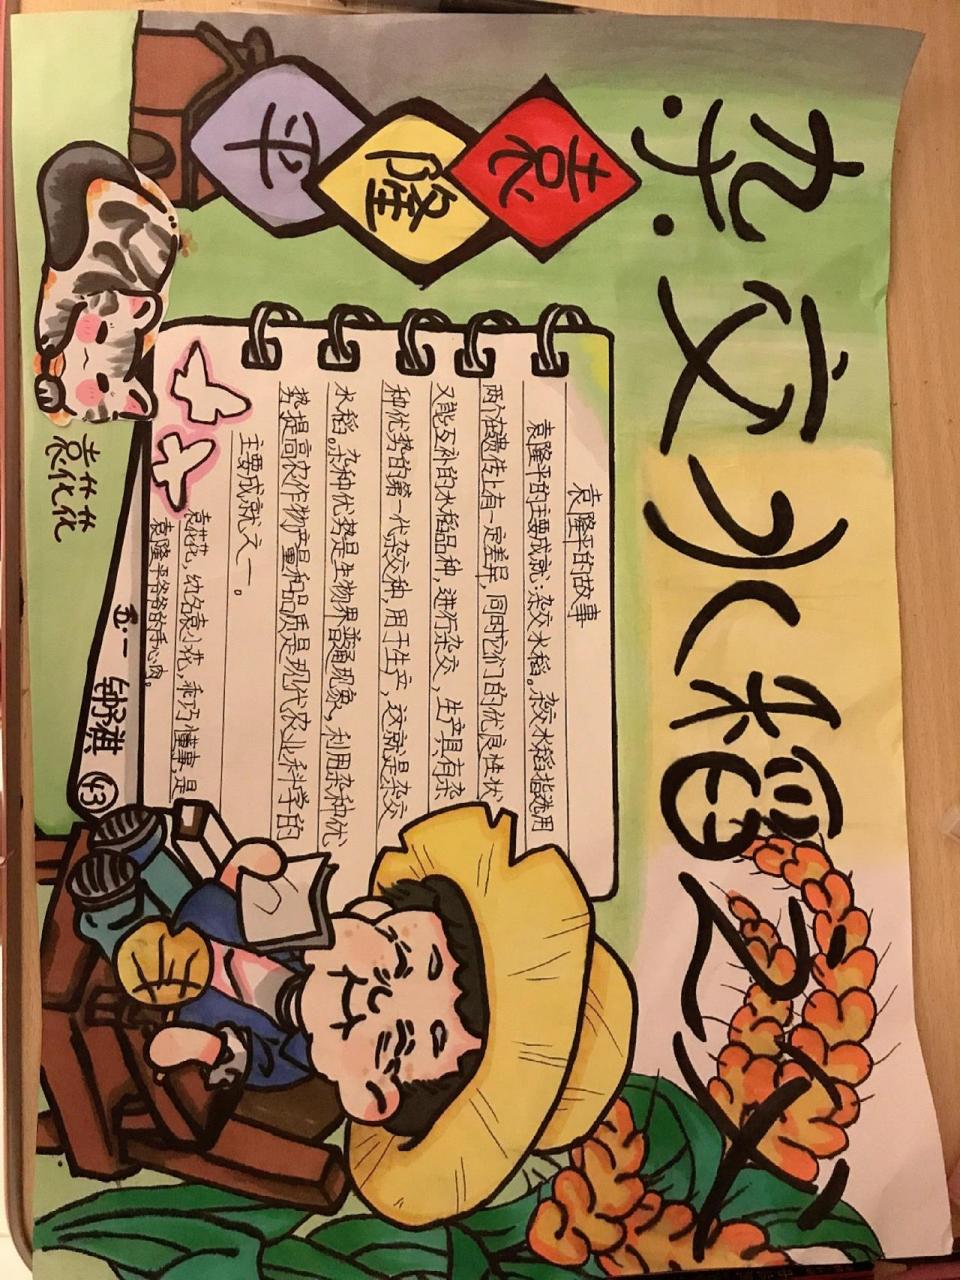 杂交水稻之父
袁隆平
袁隆平的故事
袁隆平的主要成就：杂交水稻。杂交水稻指选用
两个在遗传上有一定差异，同时它们的优良性状
又能互补的水稻品种，进行杂交，生产具有杂
种优势的第一代杂交种，用于生产，这就是杂交
水稻。杂种优势是生物界普遍现象，利用杂种优
势提高农作物产量和品质是现代农业科学的
主要成就之一。
袁花花，幼名袁小花，乖巧懂事，是
袁隆平爷爷的手心肉。
袁花花
五·一 钟子淇 43